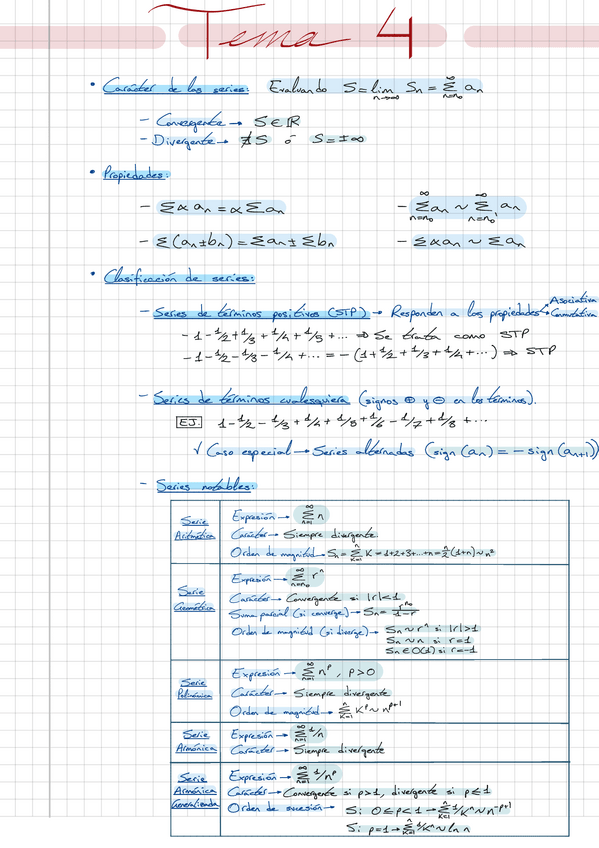 Tema 4
• Carácter de las series: Evaluando S = lim_{n→∞} Sn = Σ_{n=n₀}^{∞} an
– Convergente → S ∈ ℝ
– Divergente → ∄ S ó S = ±∞
• Propiedades:
– Σ α an = α Σ an – Σ_{n=n₀}^{∞} an ∼ Σ_{n=n₀'}^{∞} an
– Σ (an ± bn) = Σ an ± Σ bn – Σ α an ∼ Σ an
• Clasificación de series:
– Series de términos positivos (STP) → Responden a las propiedades Asociativa Conmutativa
– 1 - 1/2 + 1/3 + 1/4 + 1/5 + ... ⇒ Se trata como STP
– 1 - 1/2 - 1/3 - 1/4 + ... = - (1 + 1/2 + 1/3 + 1/4 + ...) ⇒ STP
– Series de términos cualesquiera (signos ⊕ y ⊖ en los términos).
EJ. 1 - 1/2 - 1/3 + 1/4 + 1/5 + 1/6 - 1/7 + 1/8 + ...
√ Caso especial → Series alternadas (sign (an) = - sign (an+1))
– Series notables:
Serie Aritmética
Expresión → Σ_{n=1}^{∞} n
Carácter → Siempre divergente.
Orden de magnitud → Sn = Σ_{k=1}^{n} K = 1+2+3+...+n = n/2 (1+n) ∼ n²
Serie Geométrica
Expresión → Σ_{n=n₀}^{∞} rⁿ
Carácter → Convergente si |r| < 1
Suma parcial (si converge) → Sn = r^{n₀}/(1-r)
Orden de magnitud (si diverge) → Sn ∼ rⁿ si |r| > 1
Sn ∼ n si r = 1
Sn ∈ O(1) si r = -1
Serie Polinómica
Expresión → Σ_{n=1}^{∞} n^p, p > 0
Carácter → Siempre divergente
Orden de magnitud → Σ_{k=1}^{n} K^p ∼ n^{p+1}
Serie Armónica
Expresión → Σ_{n=1}^{∞} 1/n
Carácter → Siempre divergente
Serie Armónica Generalizada
Expresión → Σ_{n=1}^{∞} 1/n^p
Carácter → Convergente si p > 1, divergente si p ≤ 1
Orden de sucesión → Si 0 ≤ p < 1 → Σ_{k=1}^{n} 1/K^n ∼ n^{-p+1}
Si p = 1 → Σ_{k=1}^{n} 1/K^n ∼ ln n